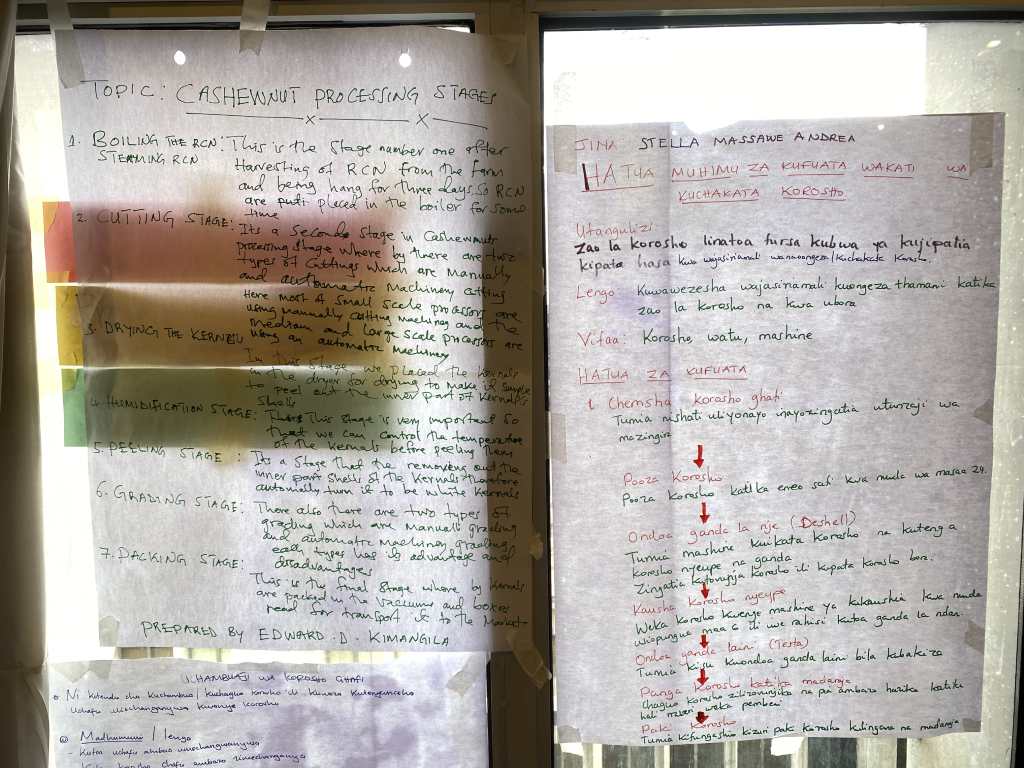 TOPIC: CASHEWNUT PROCESSING STAGES
1. BOILING THE RCN: This is the stage number one after
STEAMING RCN
Harvesting of RCN from the farm
and being hang for three days. So RCN
are placed in the boiler for some
time
2. CUTTING STAGE: Its a second stage in Cashewnuts
processing stage where by there are two
types of cuttings which are Manually
and automatic Machinery cutting
Here most of small scale processors are
using manually cutting machines and the
medium and large scale processors are
using an automatic Machinery
3. DRYING THE KERNELS
In this stage we placed the kernels
in the dryer for drying to make it simple
to peel out the inner part of kernels
shells
4. HUMIDIFICATION STAGE: This stage is very important so
that we can control the temperature
of the kernels before peeling them
5. PEELING STAGE : Its a stage that the removing out the
inner part shells of the kernels therefore
automally turn it to be white kernels
6. GRADING STAGE: There also there are two types of
grading which are Manually grading
and automatic machinery grading
each types has its advantage and
disadvantages
7. PACKING STAGE:
This is the final stage where by kernels
are packed in the vacuums and boxes
read for transport it to the Market
PREPARED BY EDWARD .D. KIMANGILA
UCHAMBUZI WA KOROSHO GHAFI
Ni kitendo cha kuchambua / kuchagua korosho ili kuweza kutenganisha
uchafu uliochanganywa kwenye korosho
Madhumuni / lengo
- Kutoa uchafu ambao umechanganywa
- Kutoa korosho chafu ambazo zimechanganywa
JINA STELLA MASSAWE ANDREA
HATUA MUHIMU ZA KUFUATA WAKATI WA
KUCHAKATA KOROSHO
Utangulizi
Zao la korosho linatoa fursa kubwa ya kujipatia
kipato hasa kwa wajasiriamali wanaoongeza/kuchakata Korosho.
Lengo: Kuwawezesha wajasiriamali kuongeza thamani katika
zao la korosho na kwa ubora
Vifaa: Korosho, watu, mashine
HATUA ZA KUFUATA
1. Chemsha korosho ghafi
Tumia nishati uliyonayo inayozingatia utunzaji wa
mazingira
Pooza Korosho
Pooza korosho katika eneo safi kwa muda wa masaa 24.
Ondoa ganda la nje (Deshell)
Tumia mashine kuikata korosho na kutenga
korosho nyeupe na ganda
Zingatia kutovunja korosho ili kupata korosho bora.
Kausha korosho nyeupe
Weka korosho kwenye mashine ya kukaushia kwa muda
usiopungua maa 6 ili iwe rahisi kutoa ganda la ndani.
Ondoa ganda laini (Testa)
Tumia kisu kuondoa ganda laini bila kubakiza
Panga korosho katika madaraja
Chagua korosho zilizovunjika na pa ambazo hazika katika
hali nzuri weka pembeni
Paki Korosho
Tumia kifungashio kizuri paki korosho kulingana na madaraja